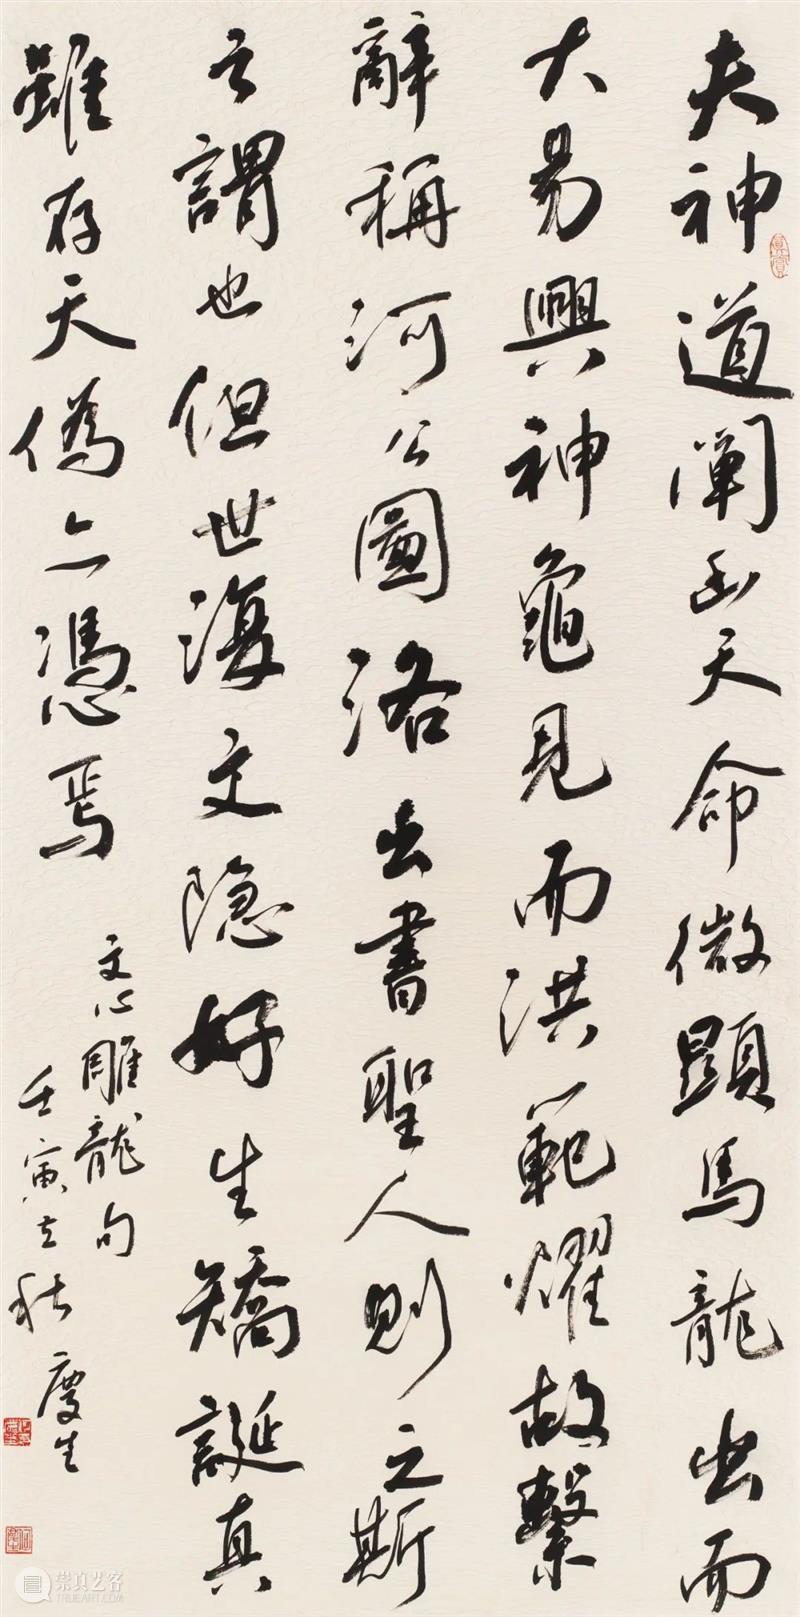 夫神道闡幽天命微顯馬龍出而
大易興神龜見而洪範燿故繫
辭稱河公圖洛出書聖人則之斯
之謂也但世文隱好生矯誕真
雖存天偽亦憑焉
文心雕龍句
壬寅立秋 慶生
崇真艺客
TRUEART.COM